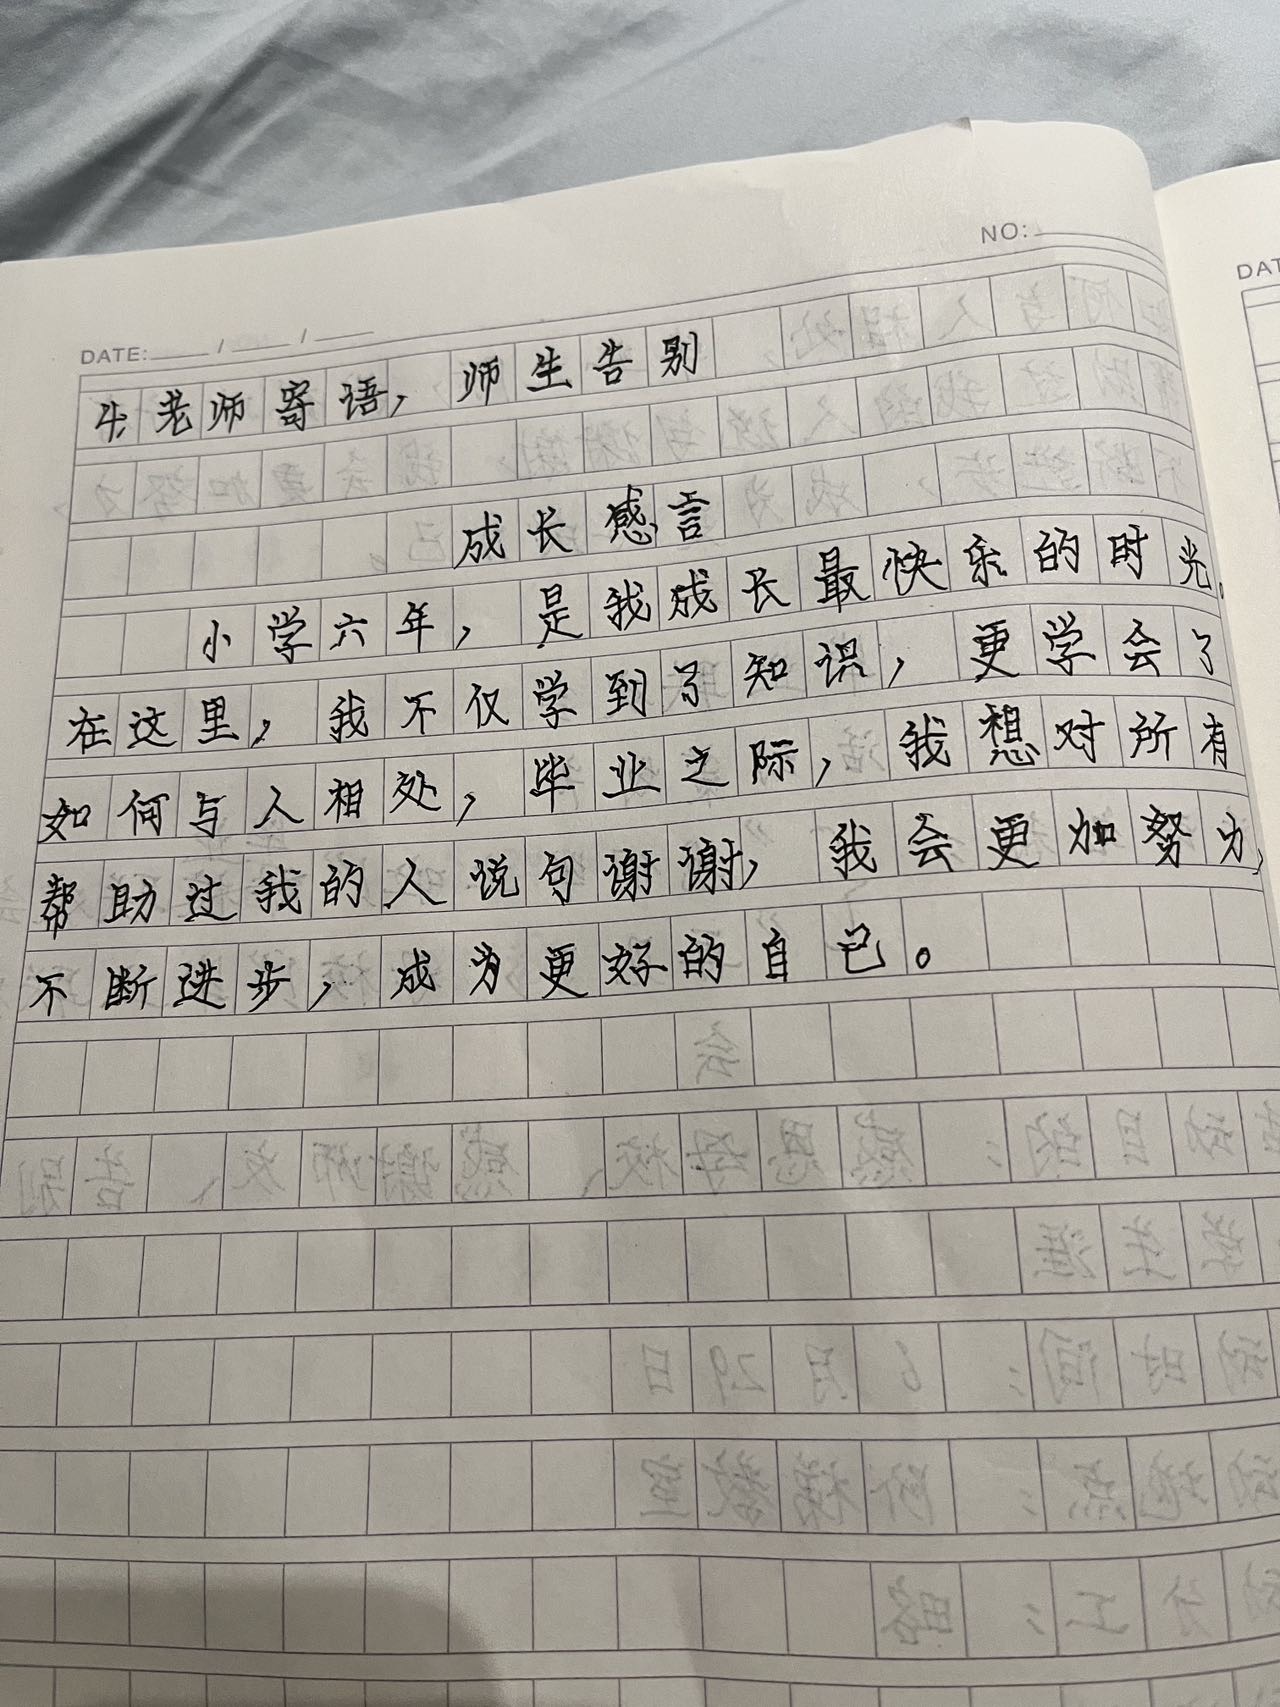 NO:
DATE: / /
4.老师寄语,师生告别
成长感言
小学六年,是我成长最快乐的时光。
在这里,我不仅学到了知识,更学会了
如何与人相处,毕业之际,我想对所有
帮助过我的人说句谢谢,我会更加努力,
不断进步,成为更好的自己。
DAT